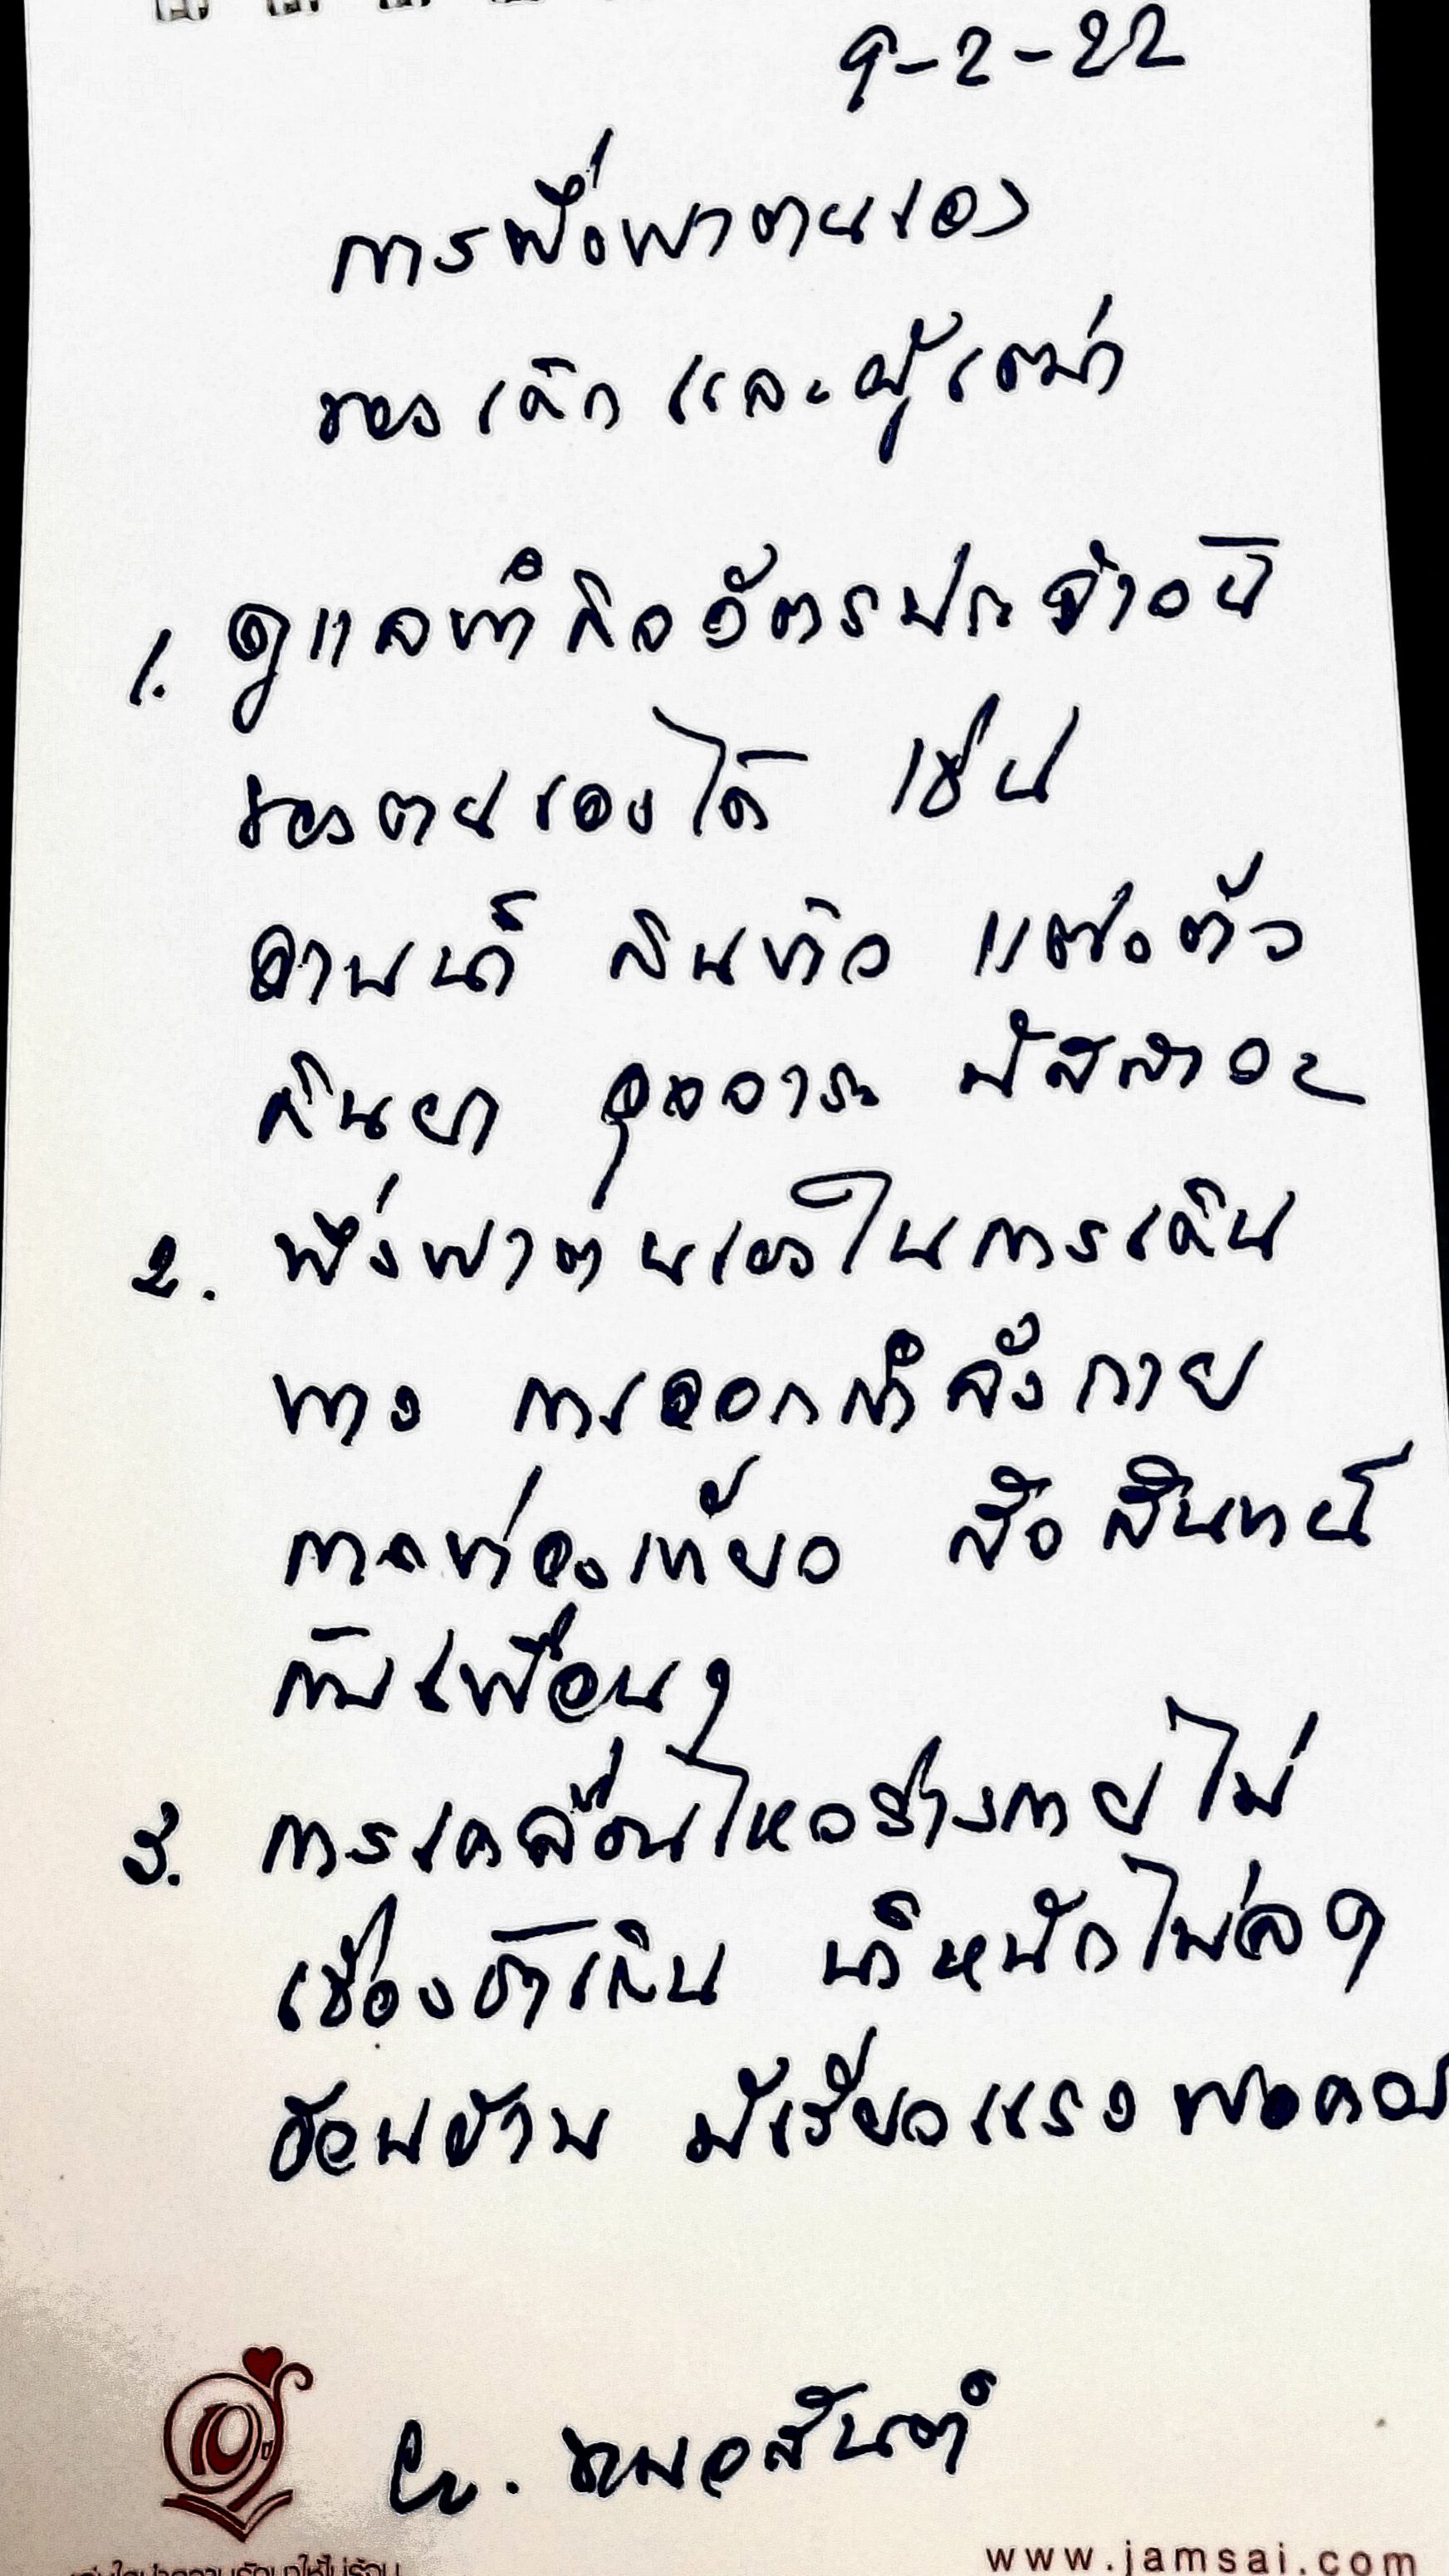 9-2-22
การพึ่งพาตนเอง
ของเด็กและผู้เฒ่า
1. ดูแลทำกิจวัตรประจำวัน
ของตนเองได้ เช่น
อาบน้ำ กินข้าว แต่งตัว
กินยา อุจจาระ ปัสสาวะ
2. พึ่งพาตนเองในการเดิน
ทาง การออกกำลังกาย
การท่องเที่ยว สังสันทน์
กับเพื่อนๆ
3. การเคลื่อนไหวร่างกายไม่
เชื่องช้าเกิน น้ำหนักไม่
อ้วน มีเรี่ยวแรงพอควร
หมอสันต์
10
www.jamsai.com